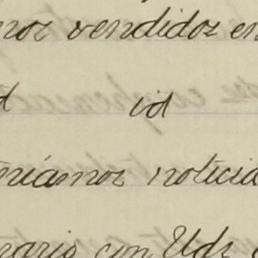 mos vendidos en
d id
níamos noticia
nario con Uds